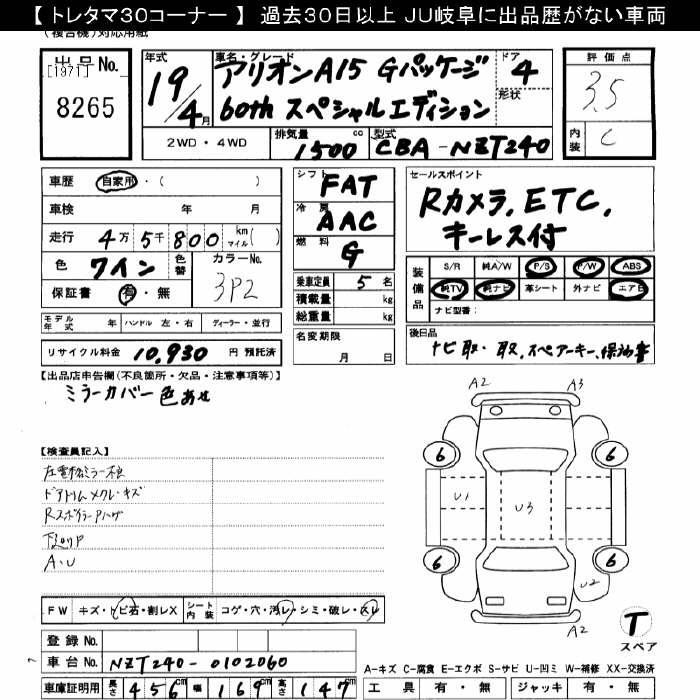 【 トレタマ30コーナー 】 過去30日以上 JU岐阜に出品歴がない車両
(複合機)対応用紙
出品No.
[1971]
8265
年式
19/4月
車名・グレード
アリオンA15 Gパッケージ
60th スペシャルエディション
ドア
4
形状
評価点
3.5
内装
C
2WD・4WD
排気量
1500 cc
型式
CBA-NZT240
車歴 自家用・( )
車検 年 月
走行 4万 5千 800 km マイル( )
色 ワイン 色替 カラーNo. 3P2
保証書 有・無
シフト
FAT
冷房
AAC
燃料
G
乗車定員 5 名
積載量 kg
総重量 kg
名変期限
月 日
セールスポイント
Rカメラ、ETC、
キーレス付
装備品
S/R 純A/W P/S P/W ABS
純TV 純ナビ 革シート 外ナビ エアB
ナビ型番:
後日品
ナビ取・取、スペアーキー、保治書
モデル年式 年 ハンドル 左・右 ディーラー・並行
リサイクル料金 10,930 円 預託済
【出品店申告欄(不良箇所・欠品・注意事項等)】
ミラーカバー色あせ
【検査員記入】
左電格ミラー不良
ドアトリムメクレ・キズ
RスポイラーPハゲ
下廻りP
A・U
FW キズ・トビ石・割レX シート内装 コゲ・穴・汚レ・シミ・破レ・スレ
登録No.
車台No. NZT240-0102060
車庫証明用 長さ 456cm 幅 169cm 高さ 147cm
A2 A3
6 6
U1 U3
6 6
U2
A2
T
スペア
A-キズ C-腐食 E-エクボ S-サビ U-凹ミ W-補修 XX-交換済
工具 有・無 ジャッキ 有・無